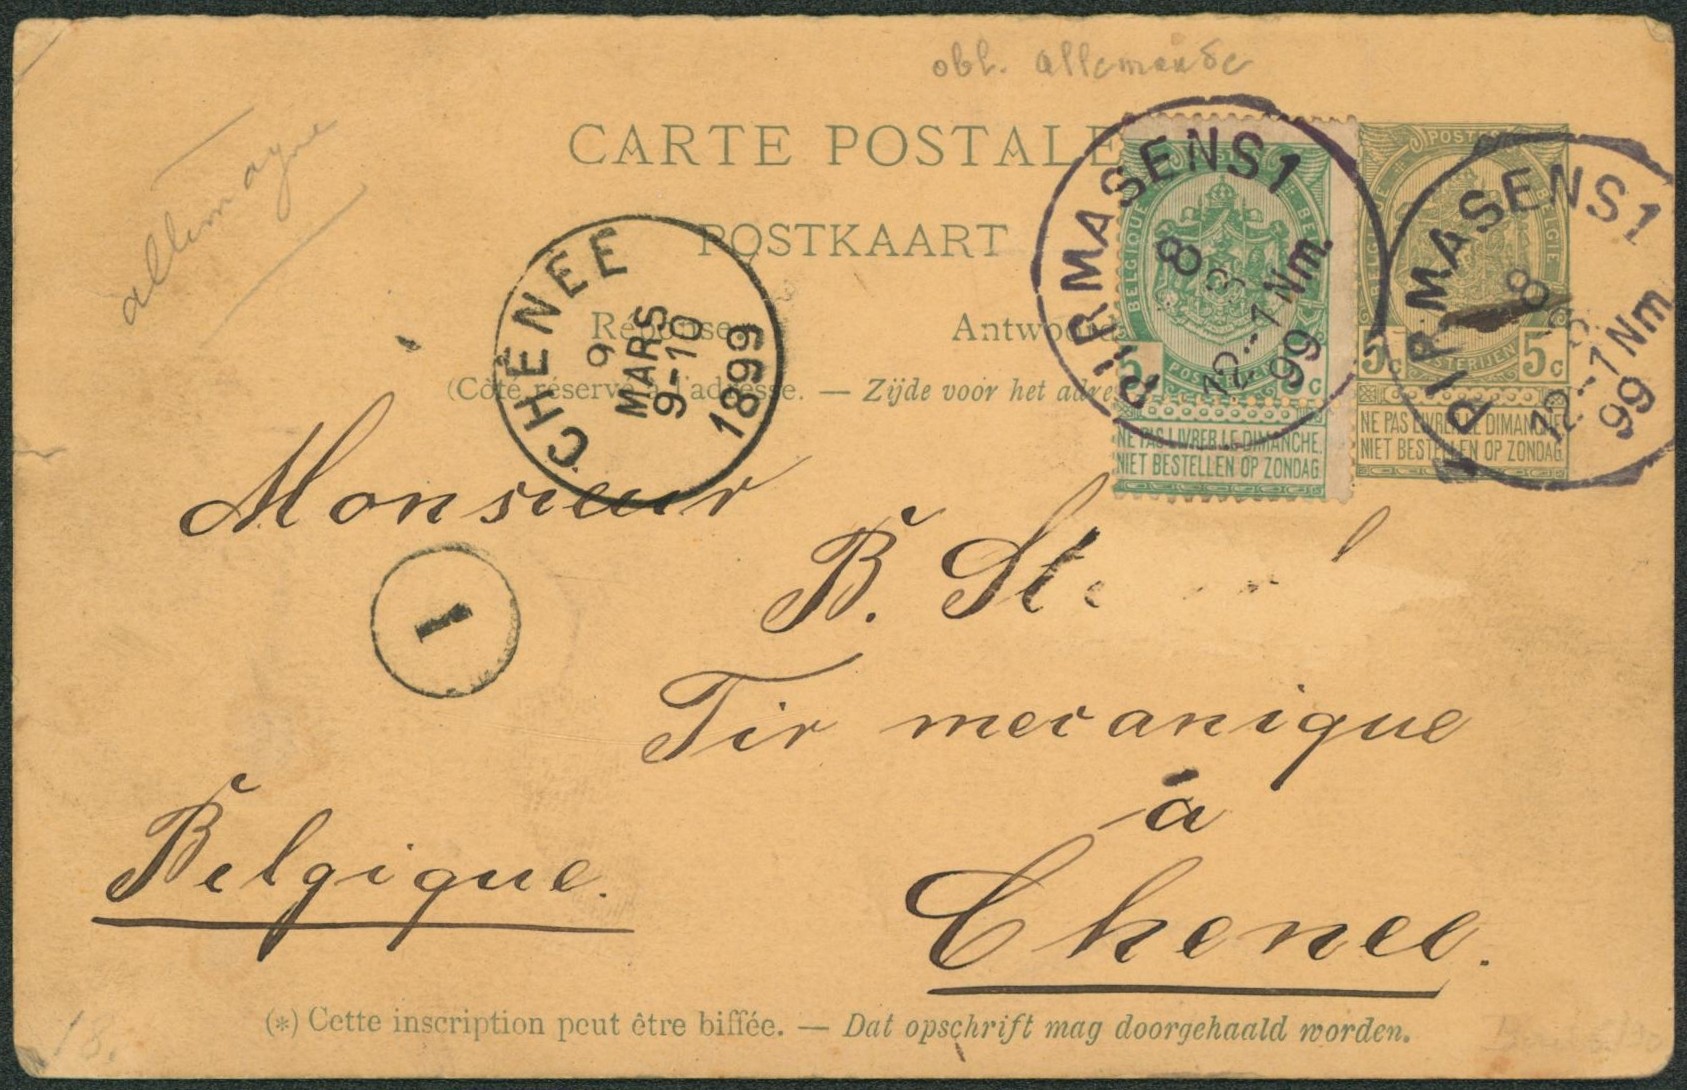 obl. allemande
allemagne
CARTE POSTALE
POSTKAART
Réponse Antwoord
(Côté réservé à l'adresse. — Zijde voor het adre
CHENEE
9
MARS
9-10
1899
PIRMASENS 1
8
3
12-1 Nm.
99
BELGIQUE
POSTERIJEN
5 c
NE PAS LIVRER LE DIMANCHE.
NIET BESTELLEN OP ZONDAG.
PIRMASENS 1
8
12-1 Nm.
99
POSTES
BELGIE
5c 5c
NE PAS LIVRER LE DIMANCHE
NIET BESTELLEN OP ZONDAG.
Monsieur
B. St
1
Tir mecanique
à
Belgique.
Chenee.
(*) Cette inscription peut être biffée. — Dat opschrift mag doorgehaald worden.
18.